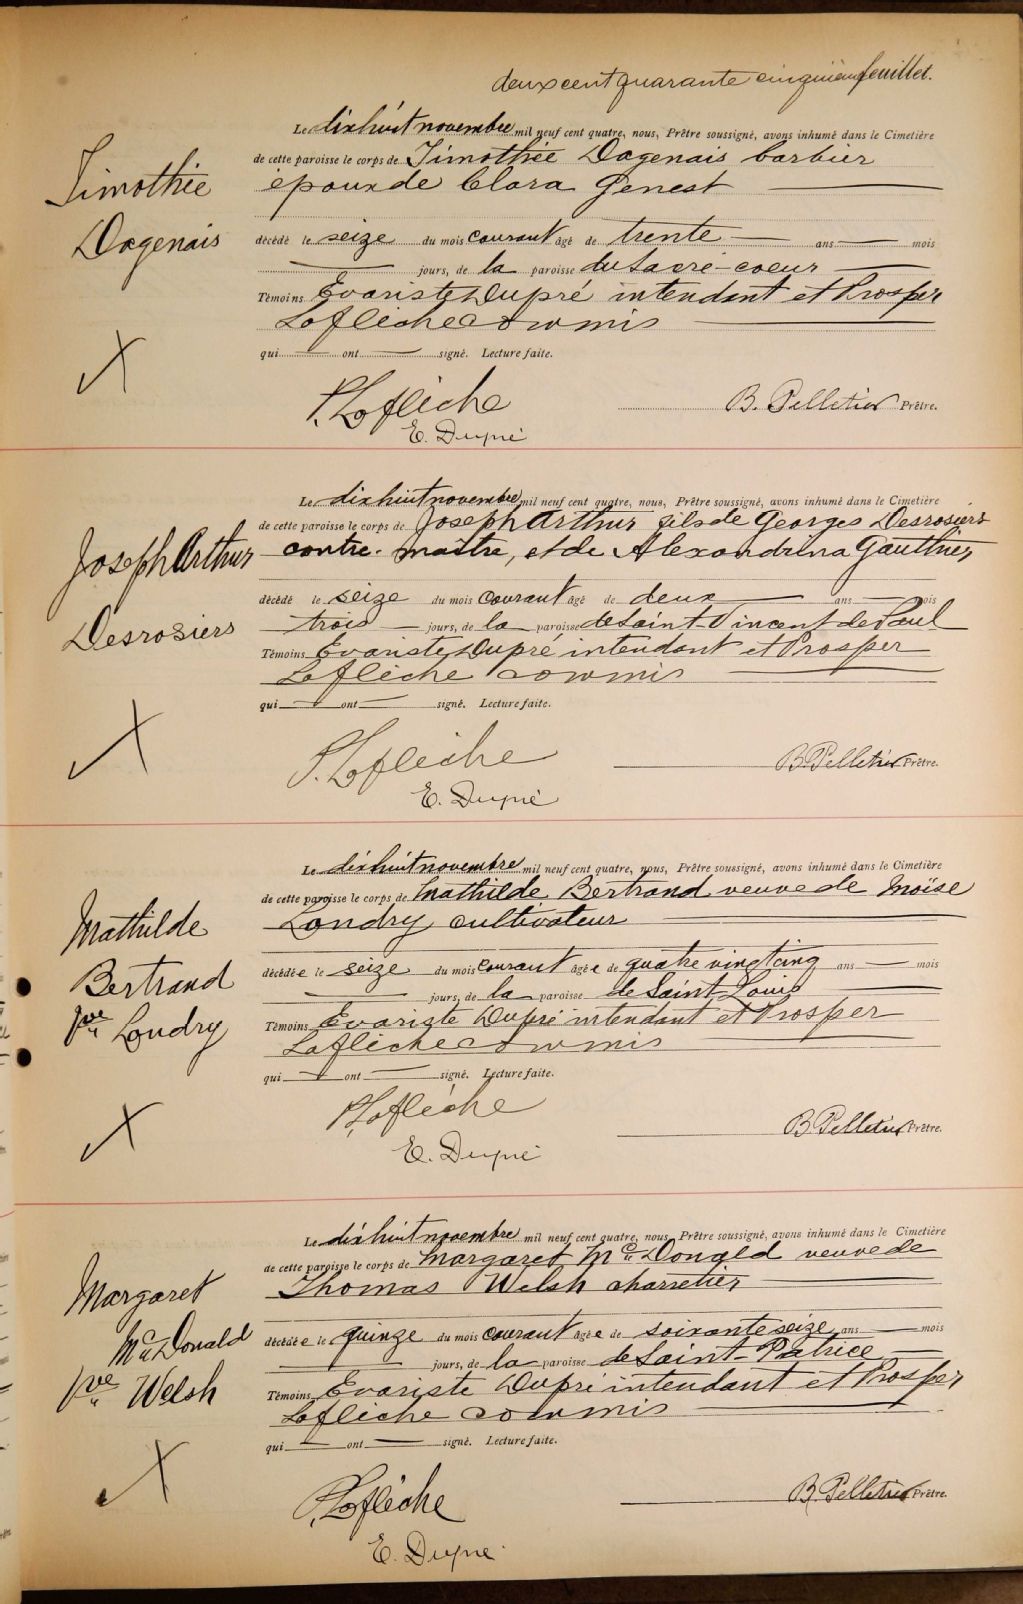 deux cent quarante cinquième feuillet.
Le dix huit novembre mil neuf cent quatre, nous, Prêtre soussigné, avons inhumé dans le Cimetière
de cette paroisse le corps de Timothée Dagenais barbier
époux de Clara Genest
Timothée
Dagenais
décédé le seize du mois courant âgé de trente ans mois
jours, de la paroisse du Sacré-coeur
Témoins Evariste Dupré intendant et Prosper
Laflèche commis
qui ont signé. Lecture faite.
P. Laflèche
B. Pelletier Prêtre.
E. Dupré
Le dix huit novembre mil neuf cent quatre, nous, Prêtre soussigné, avons inhumé dans le Cimetière
de cette paroisse le corps de Joseph Arthur fils de Georges Desrosiers
contre-maître, et de Alexandrina Gauthier
Joseph Arthur
Desrosiers
décédé le seize du mois courant âgé de deux ans mois
trois jours, de la paroisse de Saint-Vincent de Paul
Témoins Evariste Dupré intendant et Prosper
Laflèche commis
qui ont signé. Lecture faite.
P. Laflèche
B. Pelletier Prêtre.
E. Dupré
Le dix huit novembre mil neuf cent quatre, nous, Prêtre soussigné, avons inhumé dans le Cimetière
de cette paroisse le corps de Mathilde Bertrand veuve de Moïse
Landry cultivateur
Mathilde
Bertrand
Vve Landry
décédée le seize du mois courant âgée de quatre vingt cinq ans mois
jours, de la paroisse de Saint-Louis
Témoins Evariste Dupré intendant et Prosper
Laflèche commis
qui ont signé. Lecture faite.
P. Laflèche
B. Pelletier Prêtre.
E. Dupré
Le dix huit novembre mil neuf cent quatre, nous, Prêtre soussigné, avons inhumé dans le Cimetière
de cette paroisse le corps de Margaret McDonald veuve de
Thomas Welsh charretier
Margaret
McDonald
Vve Welsh
décédée le quinze du mois courant âgée de soixante seize ans mois
jours, de la paroisse de Saint-Patrice
Témoins Evariste Dupré intendant et Prosper
Laflèche commis
qui ont signé. Lecture faite.
P. Laflèche
B. Pelletier Prêtre.
E. Dupré